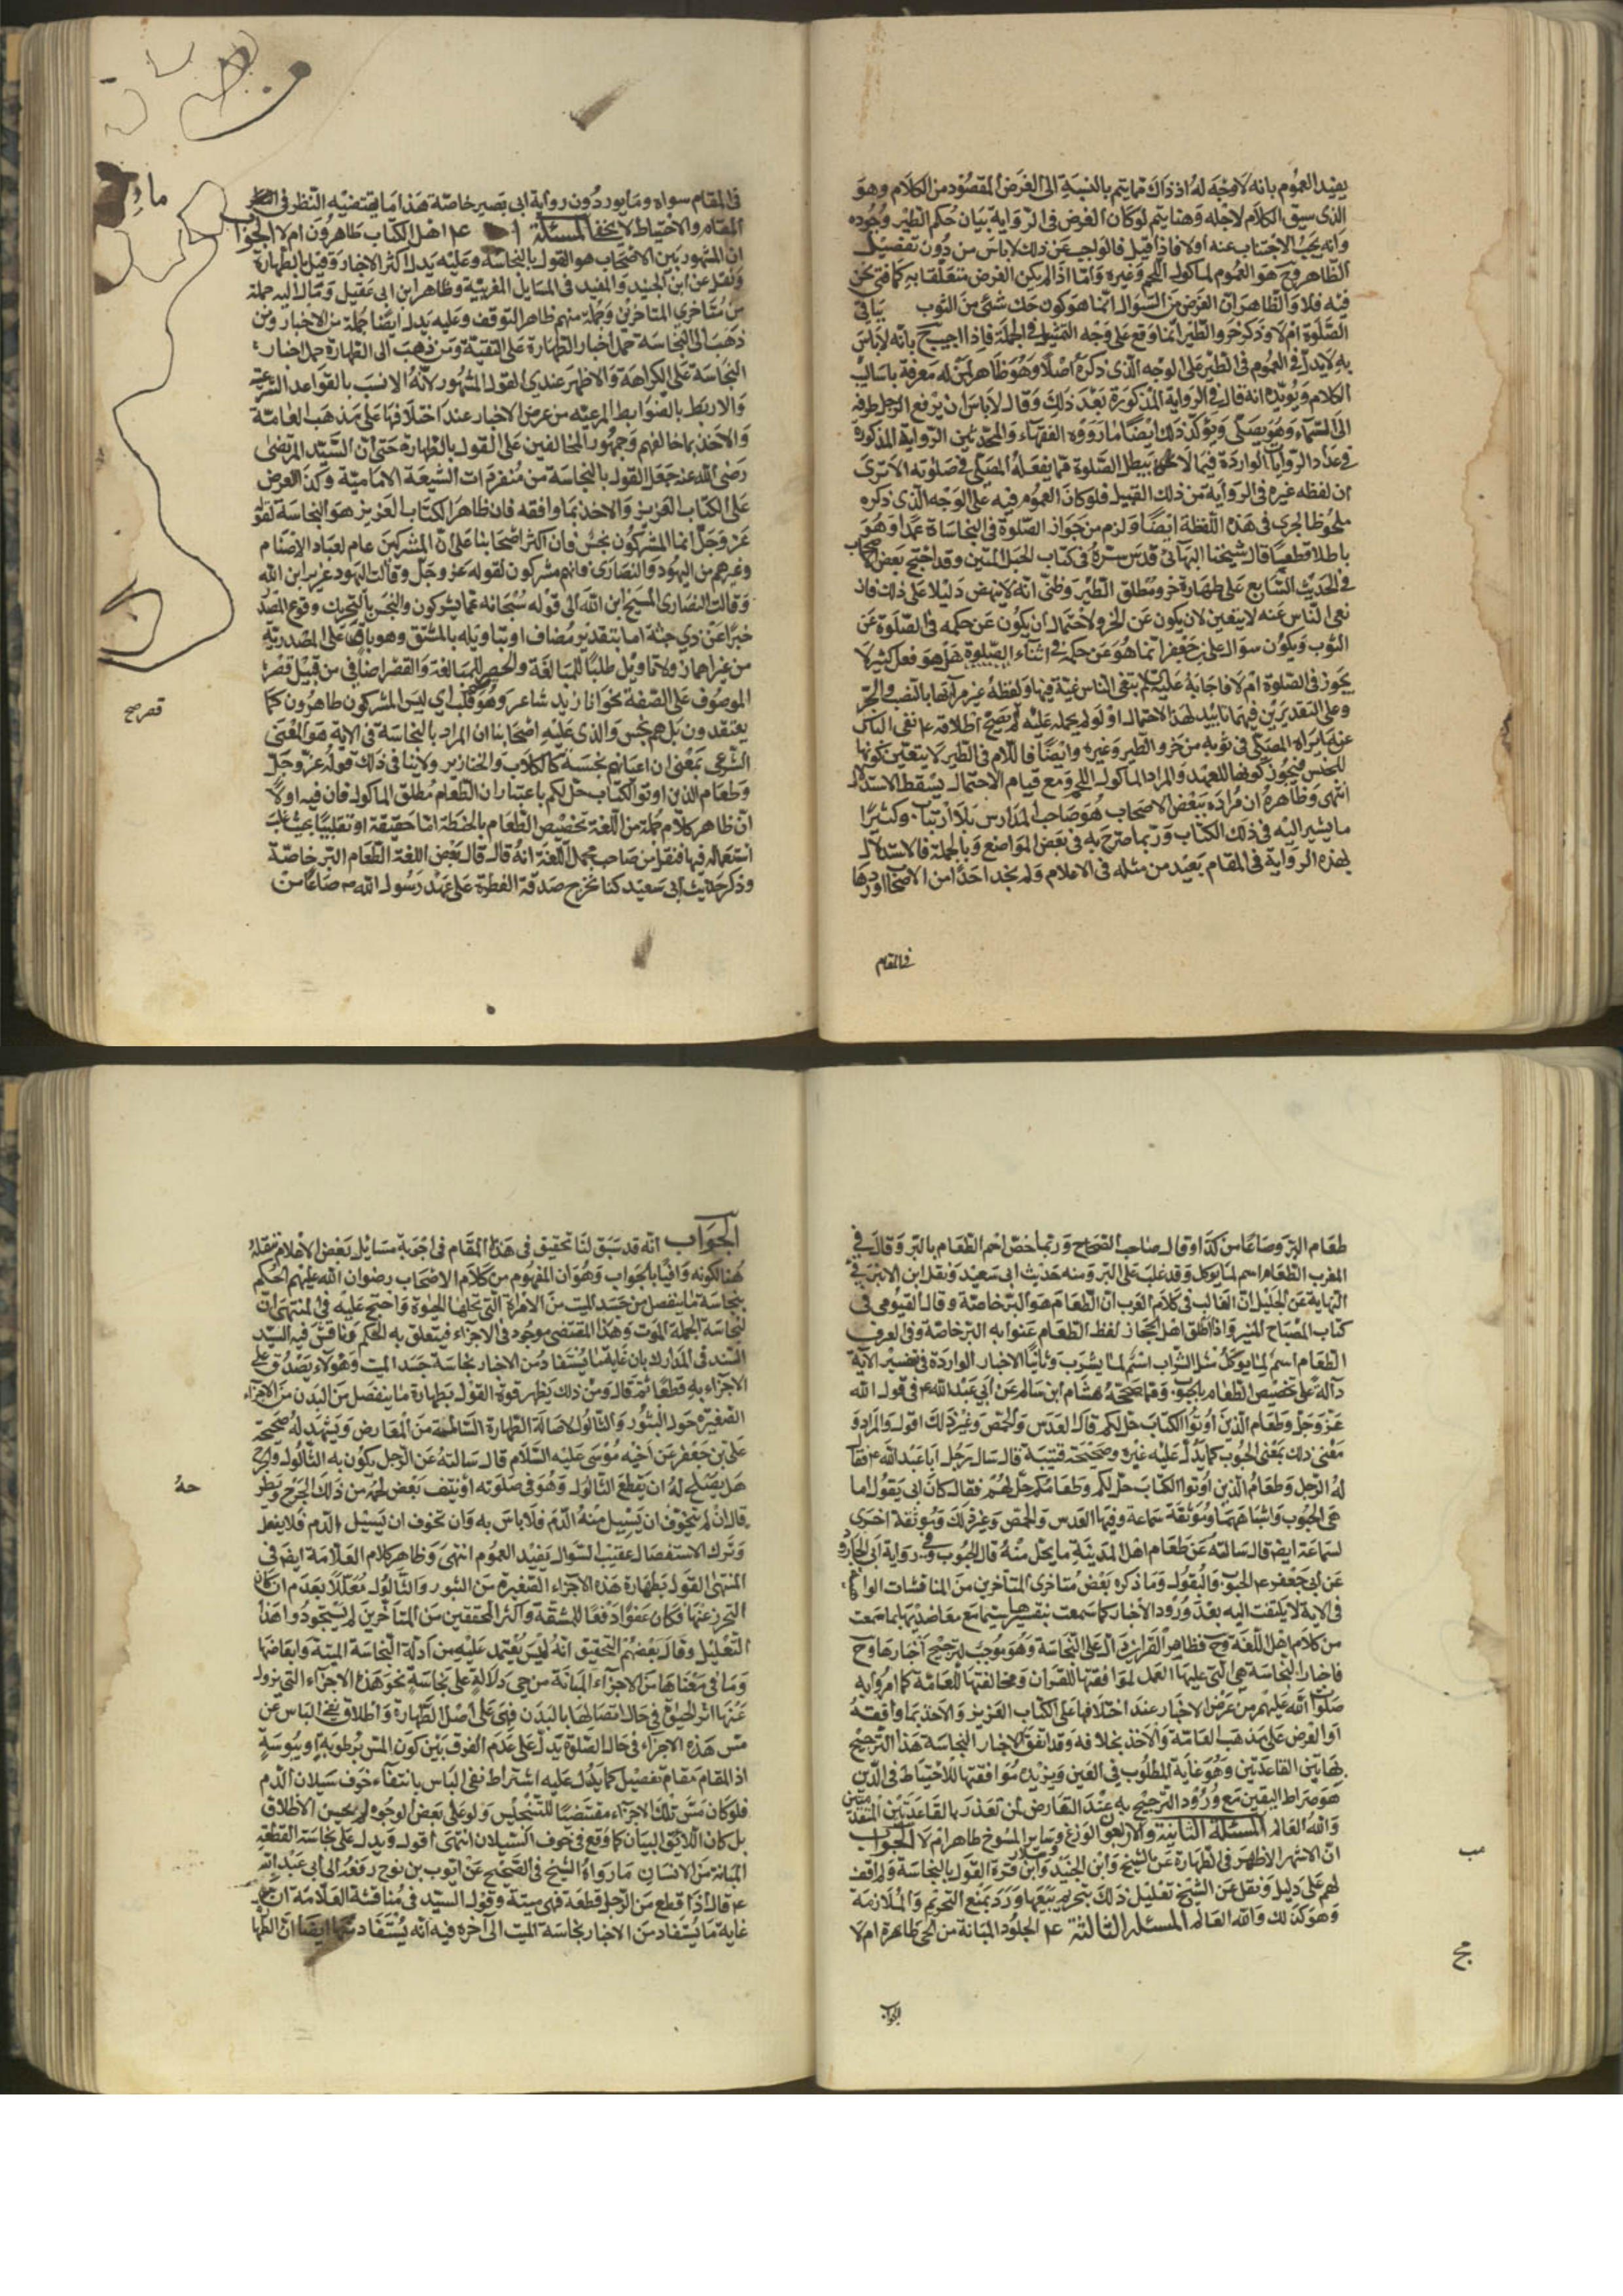 يفيد العموم بانه لا وجه له اذ ذاك مما يتم بالنسبة الى الغرض المقصود من الكلام وهو
الذى سيق الكلام لاجله وهنا يتم لو كان الغرض فى الرواية بيان حكم الطير وجوده
وانه يجب الاجتناب عنه اولا فاذا قيل فالواجب عن ذلك لا باس من دون تفصيل
الظاهر وح هو العموم لماكول اللحم وغيره واما اذا لم يكن الغرض متعلقا به كما فى نحن
فيه فلا والظاهر ان الغرض من السؤال انما هو كون حك شئ من الثوب ينافى
الصلوة ام لا وذكر خرؤ الطير انما وقع على وجه التمثيل فى الجملة فاذا اجيب ح بانه لا باس
به لا يدل فى العموم فى الطير على الوجه الذى ذكره اصلا وهو ظاهر لمن له معرفة باساليب
الكلام ويؤيده انه قال فى الرواية المذكورة بعد ذلك وقال لا باس ان يرفع الرجل طرفه
الى السماء وهو يصلى ويؤكد ذلك ايضا ما رووه الفقهاء والمحدثين الرواية المذكورة
فى عداد الروايات الواردة فيما لا يبطل الصلوة مما يفعله المصلى فى صلوته الا ترى
ان لفظه غيره فى الرواية من ذلك القبيل فلو كان العموم فيه على الوجه الذى ذكره
ملحوظا لجرى فى هذه اللفظة ايضا ولزم من جواز الصلوة فى النجاساة عمدا وهو
باطل قطعيا قال شيخنا البهائى قدس سره فى كتاب الحبل المتين وقد احتج بعض الاصحاب
فى الحديث السابع على طهارة خرؤ مطلق الطير وظنى انه لا ينهض دليلا على ذلك فان
نفى الناس عنه لا يتعين لان يكون عن الخرؤ لاحتمال ان يكون عن حكمه فى الصلوة عن
الثوب ويكون سؤال على بن جعفر انما هو عن حكمه فى اثناء الصلوة هل هو فعل كثير لا
يجوز فى الصلوة ام لا فاجابه عليه السلام بنفى الناس عنه فيها ولفظة غير مراتها بالنصب والجر
وعلى التقديرين فيهما تاييد لهذا الاحتمال اذ لو لم يحمله عليه لم يصح اطلاقه ع نفى الباس
عن ما يراه المصلى فى ثوبه من خرؤ الطير وغيره وايضا فاللام فى الطير لا يتعين كونها
للجنس فيجوز كونها للعهد والمراد الماكول اللحم ومع قيام الاحتمال يسقط الاستدلال
انتهى وظاهره ان مراده ببعض الاصحاب هو صاحب المدارس بلا ارتياب وكثيرا
ما يشير اليه فى ذلك الكتاب وربما صرح به فى بعض المواضع وبالجملة فالاستدلال
بهذه الرواية فى المقام بعيد من مثله فى الاعلام ولم نجد احدا من الاصحاب اوردها
فى المقام
فى المقام سواه وما يورد دون رواية ابى بصير خاصة هذا ما يقتضيه النظر فى
المقام والاحتياط لا يخفى المسئلة ا ع اهل الكتاب طاهرون ام لا الجواب
ان المشهور بين الاصحاب هو القول بالنجاسة وعليه يدل اكثر الاخبار وقيل بالطهارة
ونقل عن ابن الجنيد والمفيد فى المسايل الغرية وظاهر ابن ابى عقيل ومال اليه جملة
من متاخرى المتاخرين وجملة منهم ظاهر التوقف وعليه يدل ايضا جملة من الاخبار ومن
ذهب الى النجاسة حمل اخبار الطهارة على التقية ومن ذهب الى الطهارة حمل اخبار
النجاسة على الكراهة والاظهر عندى القول المشهور لانه الانسب بالقواعد الشرعية
والاربط بالضوابط المرعيه من عرض الاخبار عند اختلافها على مذهب العامة
والاخذ بما خالفهم وجمهور المخالفين على القول بالطهارة حتى ان السيد المرتضى
رضى الله عنه جعل القول بالنجاسة من منفردات الشيعة الامامية وكذا العرض
على الكتاب العزيز والاخذ بما وافقه فان ظاهر الكتاب العزيز هو النجاسة لقوله
عز وجل انما المشركون نجس فان اكثر اصحابنا على ان المشركين عام لعباد الاصنام
وغيرهم من اليهود والنصارى فانهم مشركون لقوله عز وجل وقالت اليهود عزير ابن الله
وقالت النصارى المسيح ابن الله الى قوله سبحانه عما يشركون والنجس بالتحريك وقوع المصدر
خبرا عن ذى جثة اما بتقدير مضاف او بتاويله بالمشتق وهو باق على المصدرية
من غير اضمار ولا تاويل طلبا للمبالغة والحصر للمبالغة والقصر اضافى من قبيل قصر
الموصوف على الصفة نحو انا زيد شاعر وهو قلب اى ليس المشركون طاهرون كما
يعتقدون بل هم نجس والذى عليه اصحابنا ان المراد بالنجاسة فى الاية هو المعنى
الشرعى بمعنى ان اعيانهم نجسة كالكلاب والخنازير ولا ينافى ذلك قوله عز وجل
وطعام الذين اوتوا الكتاب حل لكم باعتبار ان الطعام مطلق الماكول فان فيه اولا
ان ظاهر كلام جملة من اللغة تخصيص الطعام بالحنطة اما حقيقة او تغليبا بحيث غلب
استعماله فيها فنقل من صاحب مجمل اللغة انه قال قال بعض اللغة الطعام البر خاصة
وذكر حديث ابى سعيد كنا نخرج صدقة الفطرة على عهد رسول الله ص صاعا من
طعام البر وصاعا من كذا وقال صاحب الصحاح وربما خص اسم الطعام بالبر وقال فى
المغرب الطعام اسم لما يوكل وقد غلب على البر ومنه حديث ابى سعيد ونقل ابن الاثير فى
النهاية عن الخليل ان الغالب فى كلام العرب ان الطعام هو البر خاصة وقال الفيومى فى
كتاب المصباح المنير واذا اطلق اهل الحجاز لفظ الطعام عنوا به البر خاصة وفى العرف
الطعام اسم لما يوكل مثل الشراب اسم لما يشرب وثانيا الاخبار الواردة فى تفسير الاية
دالة على تخصيص الطعام بالحبوب وفى صحيحة هشام ابن سالم عن ابى عبد الله ع فى قول الله
عز وجل وطعام الذين اوتوا الكتاب حل لكم قال العدس والحمص وغير ذلك اقول والمراد و
معنى ذلك بمعنى الحبوب كما يدل عليه غيره وصحيحة قتيبة قال سال رجل ابا عبد الله ع فقال
له الرجل وطعام الذين اوتوا الكتاب حل لكم وطعامكم حل لهم فقال كان ابى يقول انما
هى الحبوب واشباهها وموثقة سماعة وفيها العدس والحمص وغير ذلك وموثقة اخرى
لسماعة ايضا قال سالته عن طعام اهل المدينة ما يحل منه قال الحبوب وفى رواية ابى الجارود
عن ابى جعفر ع الحبوب والبقول وما ذكره بعض متاخرى المتاخرين من المناقشات
فى الاية لا يلتفت اليه بعد ورود الاخبار كما سمعت بتفسيرها سيما مع معاضدتها بما سمعت
من كلام اهل اللغة وح فظاهر القران دال على النجاسة وهو موجب لترجيح اخبارها وح
فاخبار النجاسة هى التى عليها العمل لموافقتها للقران ومخالفتها للعامة كما امروا به
صلوات الله عليهم من عرض الاخبار عند اختلافها على الكتاب العزيز والاخذ بما وافقه
او العرض على مذهب العامة والاخذ بخلافه وقد اتفق لاخبار النجاسة هذا الترجيح
بهاتين القاعدتين وهو غاية المطلوب فى العين ويزيده موافقتها للاحتياط فى الدين
هو صراط اليقين مع ورود الترجيح به عند التعارض لمن تعذر بالقاعدتين المتقدمتين
والله العالم المسئلة الثانية والاربعون الوزغ وساير المسوخ طاهر ام لا الجواب
ان الاشهر الاظهر فى الطهارة عن الشيخ وابن الجنيد وابن حمزة القول بالنجاسة ولم اقف
لهم على دليل ونقل عن الشيخ تعليل ذلك بتحريم بيعها ورد بمنع التحريم والملازمة
وهو كذلك والله العالم المسئلة الثالثة ع الجلود المبانة من الحى طاهرة ام لا
الجواب
الجواب انه قد سبق لنا تحقيق فى هذا المقام فى اجوبة مسايل بعض الاعلام ننقله
هنا لكونه وافيا بالجواب وهو ان المفهوم من كلام الاصحاب رضوان الله عليهم الحكم
بنجاسة ما ينفصل من جسد الميت من الاجزاء التى تحلها الحيوة واحتج عليه فى المنتهى ان
نجاسة الجملة الموت وهذا المقتضى موجود فى الاجزاء فيتعلق به الحكم وناقش فيه السيد
السند فى المدارك بان غاية ما يستفاد من الاخبار نجاسة جسد الميت وهو لا يصدق على
الاجزاء به قطعا ثم قال ومن ذلك يظهر قوة القول بطهارة ما ينفصل من البدن من الاجزاء
الصغيرة حول البثور والثالول لاصالة الطهارة السالمة من المعارض ويشهد له صحيحة
على بن جعفر عن اخيه موسى عليه السلام قال سالته عن الرجل يكون به الثالول والجرح
هل يصلح له ان يقطع الثالول وهو فى صلوته او ينتف بعض لحمه من ذلك الجرح ويطرحه
قال ان لم يتخوف ان يسيل منه الدم فلا باس به وان تخوف ان يسيل الدم فلا يفعل
وترك الاستفصال عقيب السؤال يفيد العموم انتهى وظاهر كلام العلامة ايضا فى
المنتهى القول بطهارة هذه الاجزاء الصغيرة من البثور والثالول معللا بعدم امكان
التحرز عنها فكان عفوا دفعا للمشقة واكثر المحققين من المتاخرين لم يستجودوا هذا
التعليل وقال بعضهم التحقيق انه ليس يعتمد عليه من ادلة النجاسة الميتة وابعاضها
وما فى معناها من الاجزاء المبانة من حى دلالة على نجاسة نحو هذه الاجزاء التى يزول
عنها اثر الحيوة فى حال اتصالها بالبدن فهى على اصل الطهارة واطلاق نفى الباس عن
مس هذه الاجزاء فى حال الصلوة يدل على عدم الفرق بين كون المس برطوبة او يبوسة
اذ المقام مقام تفصيل كما يدل عليه اشتراط نفى الباس بانتفاء خوف سيلان الدم
فلو كان مس تلك الاجزاء مقتضيا للتنجيس ولو على بعض الوجوه لم يحسن الاطلاق
بل كان اللائق البيان كما وقع فى خوف السيلان انتهى اقول ويدل على نجاسة القطعة
المبانة من الانسان ما رواه الشيخ فى الصحيح عن ايوب بن نوح رفعه الى ابى عبد الله
ع قال اذا قطع من الرجل قطعة فهى ميتة وقول السيد فى مناقشة العلامة ان
غاية ما يستفاد من الاخبار نجاسة الميت الى اخره فيه انه يستفاد منها ايضا ان